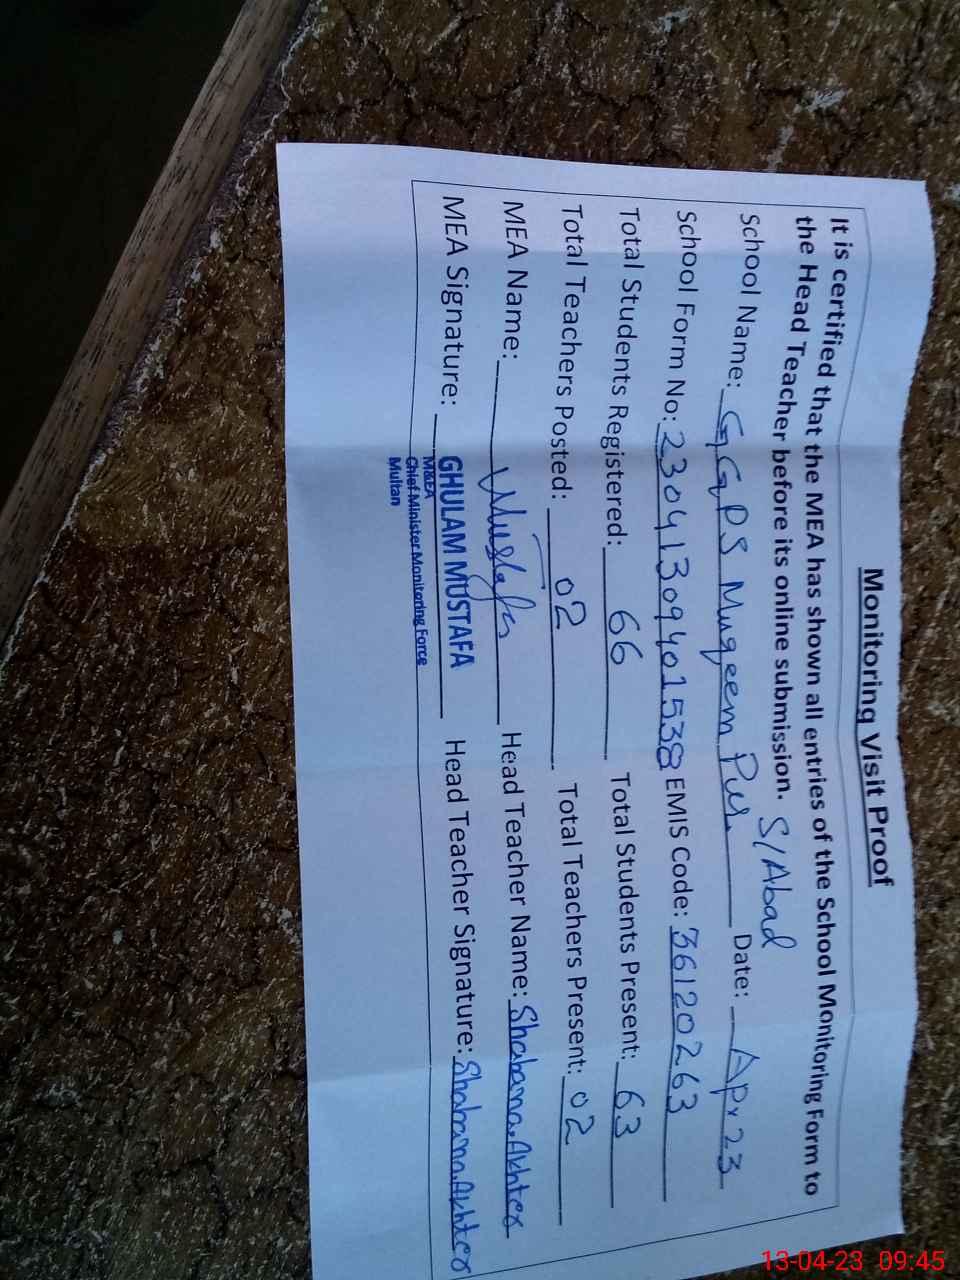 Monitoring Visit Proof
It is certified that the MEA has shown all entries of the School Monitoring Form to
the Head Teacher before its online submission. S/Abad
School Name: GGPS Muqeem Pur. Date: Apr 23
School Form No: 23041309401538 EMIS Code: 36120263
Total Students Registered: 66 Total Students Present: 63
Total Teachers Posted: 02 Total Teachers Present: 02
MEA Name: Mustafa Head Teacher Name: Shabana Akhter
MEA Signature: GHULAM MUSTAFA Head Teacher Signature: Shabana Akhter
M&EA
Chief Minister Monitoring Force
Multan
13-04-23 09:45